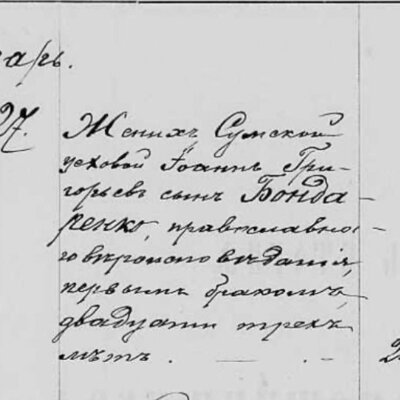 арь.
27.
Женихъ Сумской
цеховой Іоаннъ Гри-
горьевъ сынъ Бонда-
ренко, православна-
го вѣроисповѣданія,
первымъ бракомъ,
двадцати трехъ
лѣтъ.
2